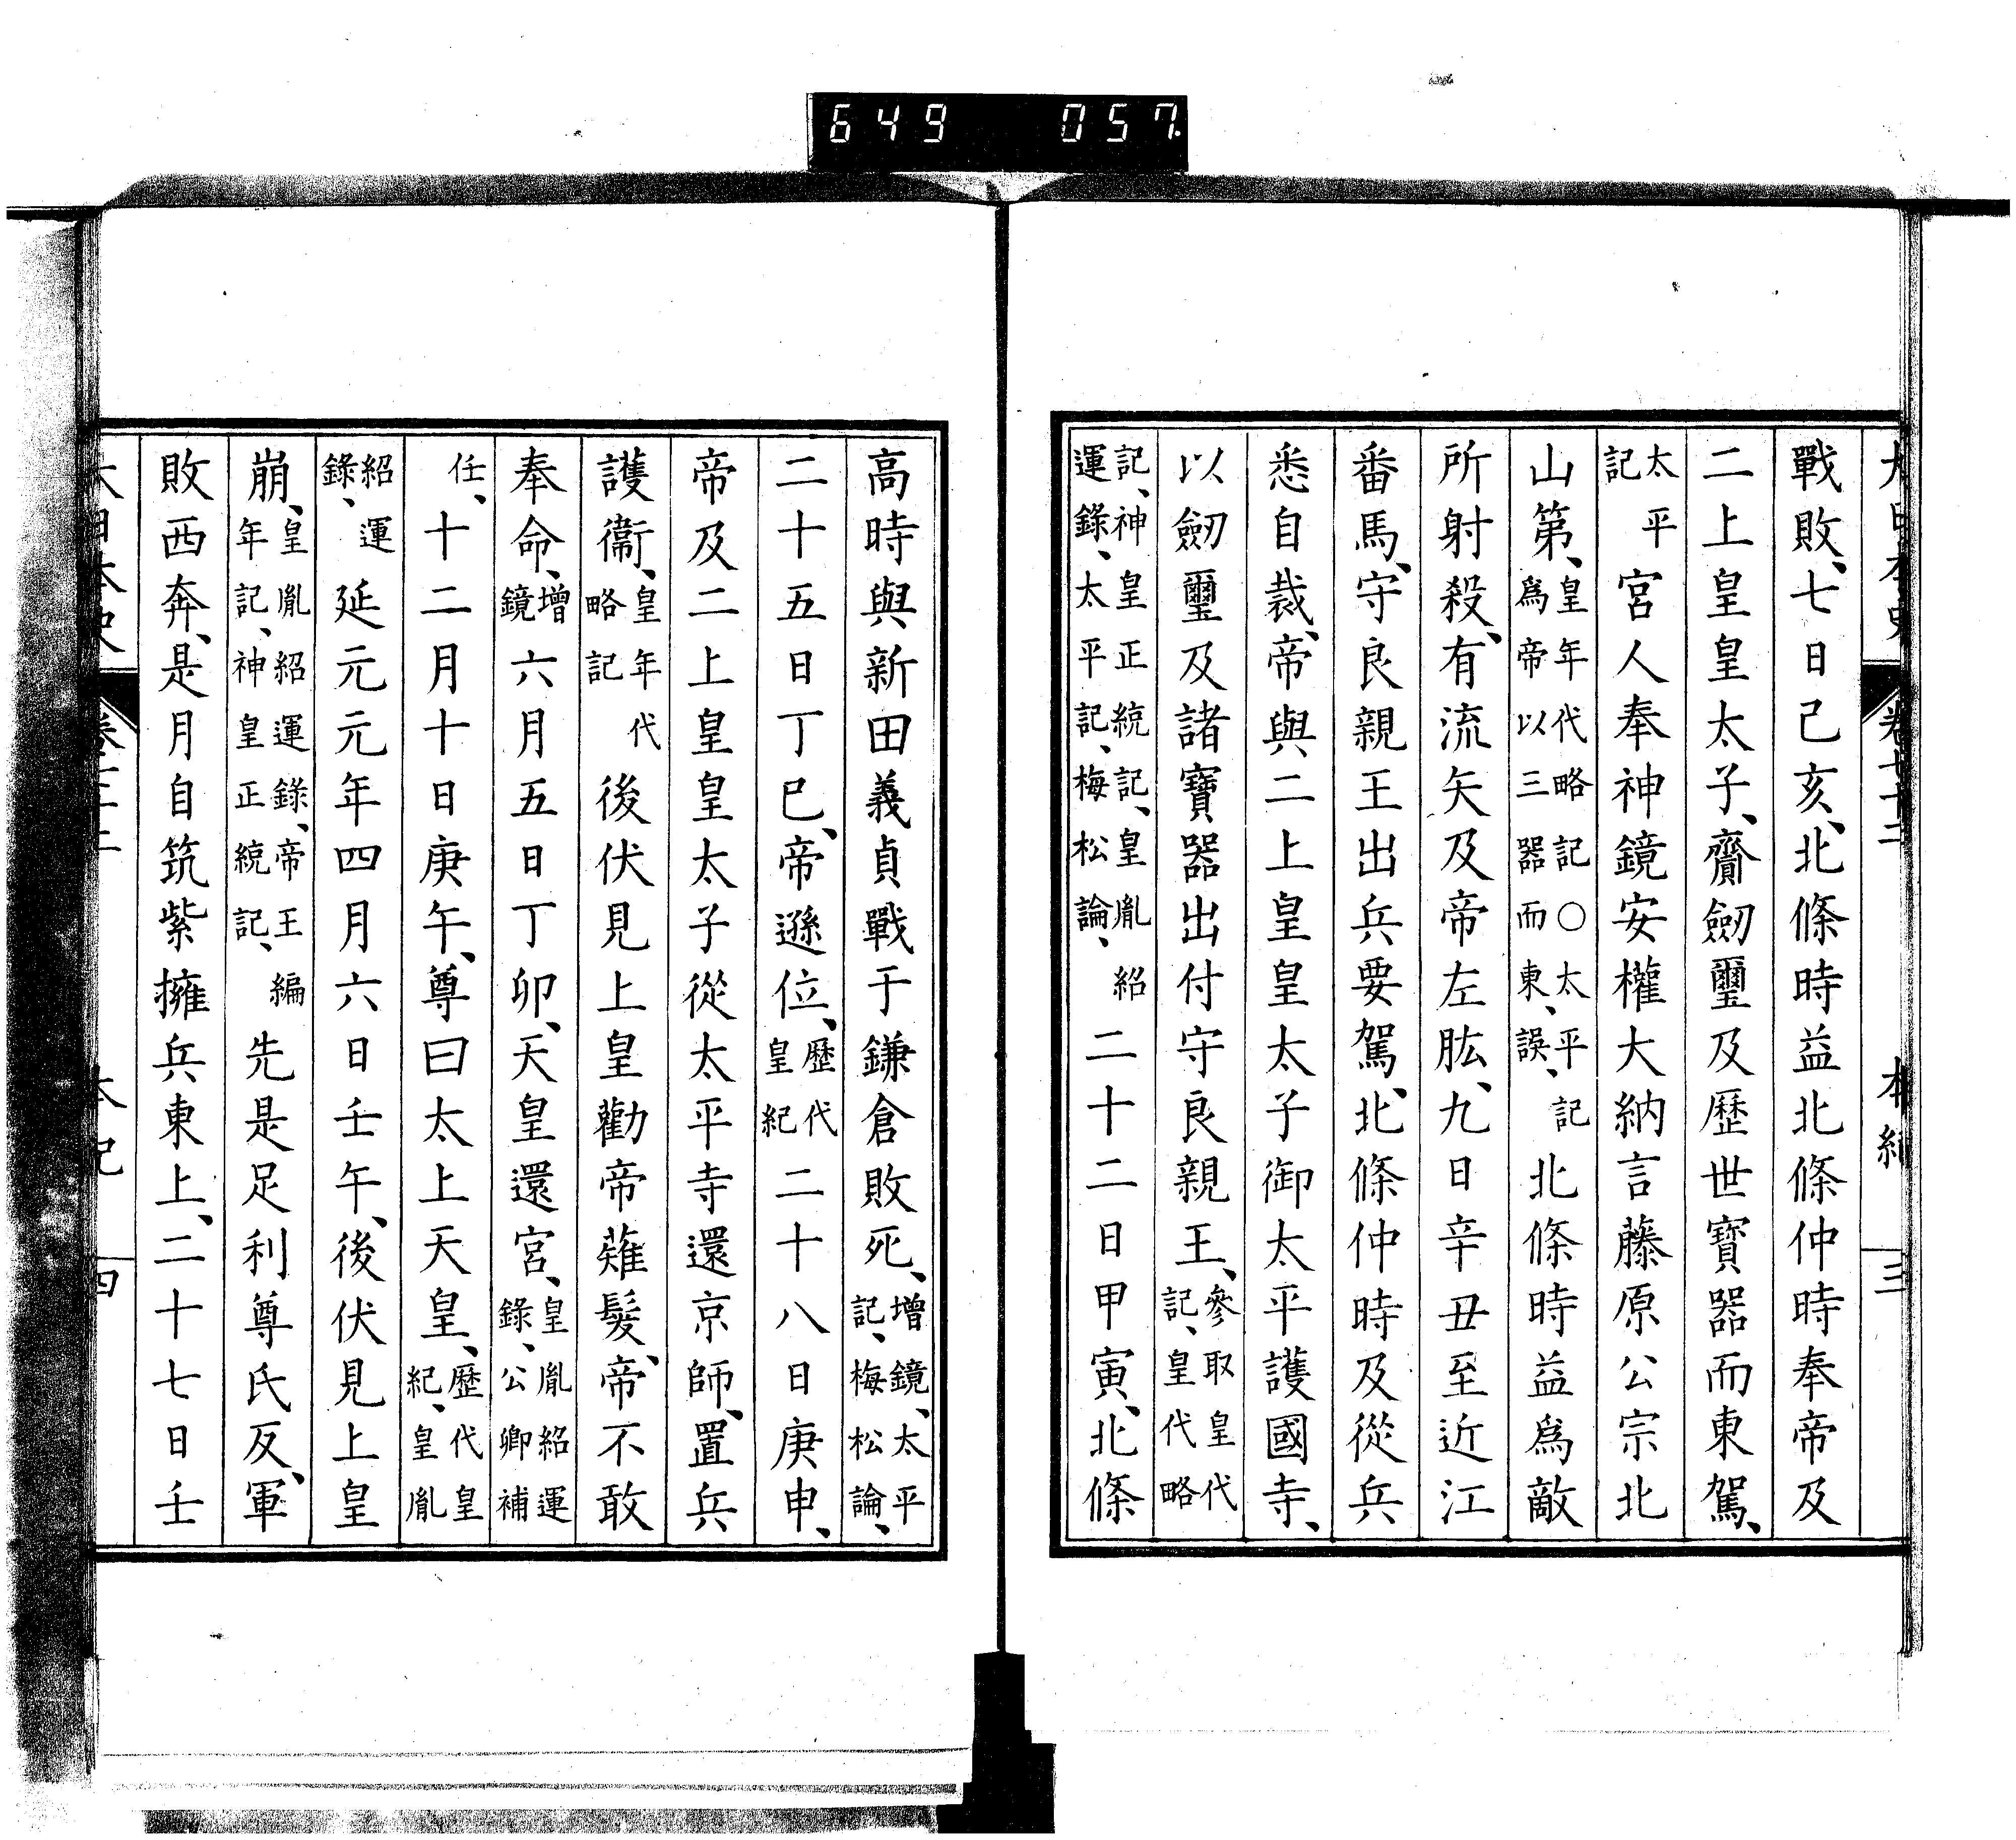 649 057.
大日本史 卷七十二 本紀 三
戰敗、七日己亥、北條時益北條仲時奉帝及
二上皇皇太子、齎劒璽及歷世寶器而東駕、
太平記 宮人奉神鏡安權大納言藤原公宗北
山第、皇年代略記○太平記爲帝以三器而東、誤、 北條時益爲敵
所射殺、有流矢及帝左肱、九日辛丑至近江
番馬、守良親王出兵要駕、北條仲時及從兵
悉自裁、帝與二上皇皇太子御太平護國寺、
以劒璽及諸寶器出付守良親王、參取皇代記、皇代略
記、神皇正統記、皇胤紹運錄、太平記、梅松論、 二十二日甲寅、北條
高時與新田義貞戰于鎌倉敗死、增鏡、太平記、梅松論、
二十五日丁巳、帝遜位、歷代皇紀 二十八日庚申、
帝及二上皇皇太子從太平寺還京師、置兵
護衞、皇年代略記 後伏見上皇勸帝薙髮、帝不敢
奉命、增鏡 六月五日丁卯、天皇還宮、皇胤紹運錄、公卿補
任、 十二月十日庚午、尊曰太上天皇、歷代皇紀、皇胤
紹運錄、 延元元年四月六日壬午、後伏見上皇
崩、皇胤紹運錄、帝王編年記、神皇正統記、 先是足利尊氏反、軍
敗西奔、是月自筑紫擁兵東上、二十七日壬
大日本史 本紀 四